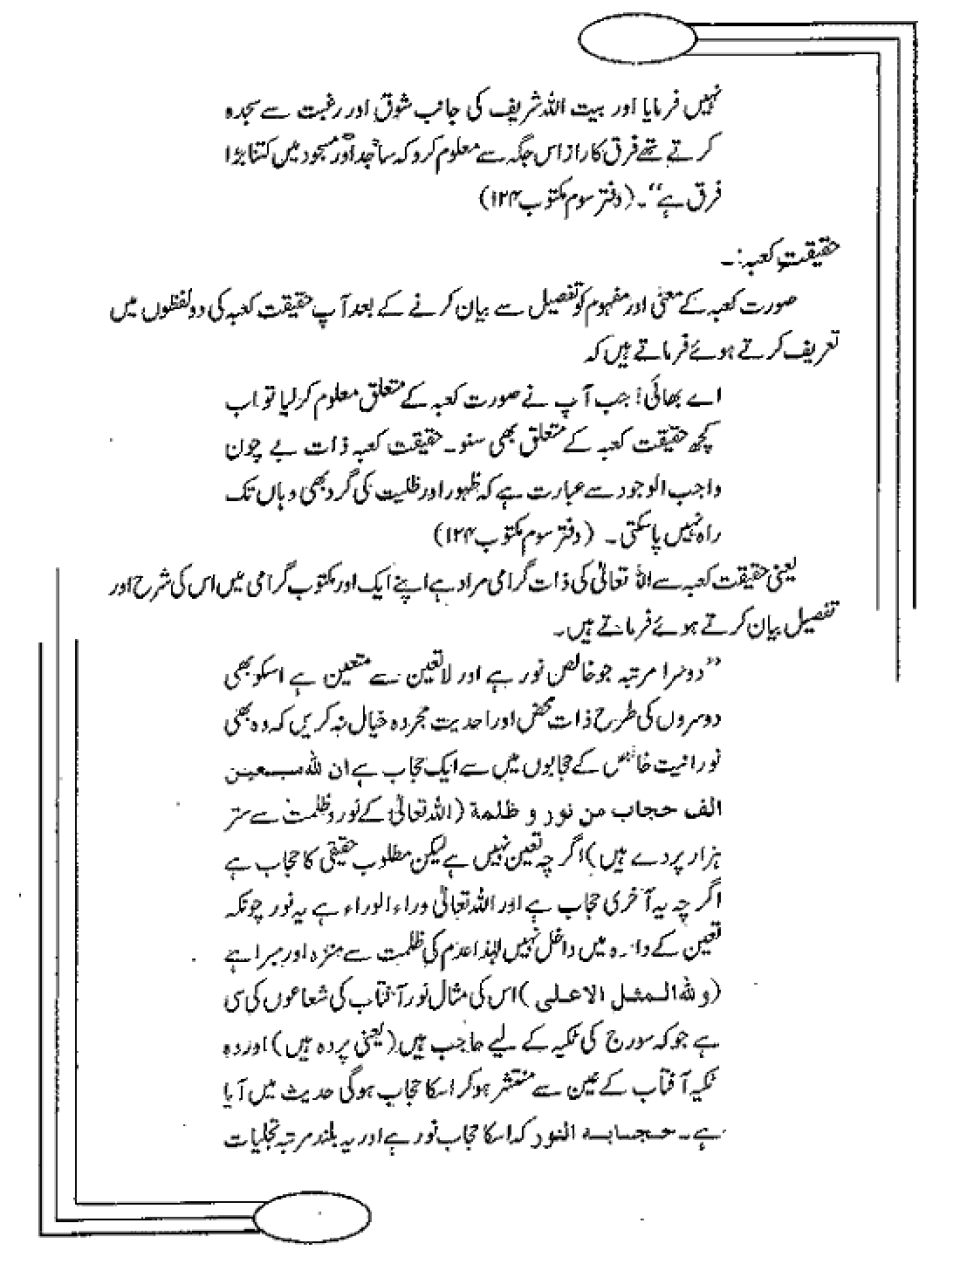 نہیں فرمایا اور بیت اللہ شریف کی جانب شوق اور رغبت سے سجدہ
کرتے تھے فرق کا راز اس جگہ سے معلوم کرو کہ ساجد اور مسجود میں کتنا بڑا
فرق ہے"۔ (دفتر سوم مکتوب ۱۲۴)
حقیقتِ کعبہ:۔
صورت کعبہ کے معنیٰ اور مفہوم کو تفصیل سے بیان کرنے کے بعد آپ حقیقت کعبہ کی دو لفظوں میں
تعریف کرتے ہوئے فرماتے ہیں کہ
اے بھائی! جب آپ نے صورت کعبہ کے متعلق معلوم کرلیا تو اب
کچھ حقیقت کعبہ کے متعلق بھی سنو۔ حقیقت کعبہ ذات بے چون
واجب الوجود سے عبارت ہے کہ ظہور اور ظلیت کی گرد بھی وہاں تک
راہ نہیں پاسکتی۔ (دفتر سوم مکتوب ۱۲۴)
یعنی حقیقت کعبہ سے اللہ تعالیٰ کی ذات گرامی مراد ہے اپنے ایک اور مکتوب گرامی میں اس کی شرح اور
تفصیل بیان کرتے ہوئے فرماتے ہیں۔
"دوسرا مرتبہ جو خالص نور ہے اور لاتعین سے متعین ہے اسکو بھی
دوسروں کی طرح ذات محض اور احدیت مجردہ خیال نہ کریں کہ وہ بھی
نورانیت خالص کے حجابوں میں سے ایک حجاب ہے ان للہ سبعین
الف حجاب من نور و ظلمة (اللہ تعالیٰ کے نور و ظلمت سے ستر
ہزار پردے ہیں) اگر چہ تعین نہیں ہے لیکن مطلوب حقیقی کا حجاب ہے
اگر چہ یہ آخری حجاب ہے اور اللہ تعالیٰ وراء الوراء ہے یہ نور چونکہ
تعین کے دائرہ میں داخل نہیں لہٰذا عدم کی ظلمت سے منزہ اور مبرا ہے
(وللہ المثل الاعلی) اس کی مثال نور آفتاب کی شعاعوں کی سی
ہے جو کہ سورج کی ٹکیہ کے لیے حاجب ہیں (یعنی پردہ ہیں) اور وہ
ٹکیہ آفتاب کے عین سے منتشر ہوکر اسکا حجاب ہوگی حدیث میں آیا
ہے۔ حجابه النور کہ اسکا حجاب نور ہے اور یہ بلند مرتبہ تجلیات